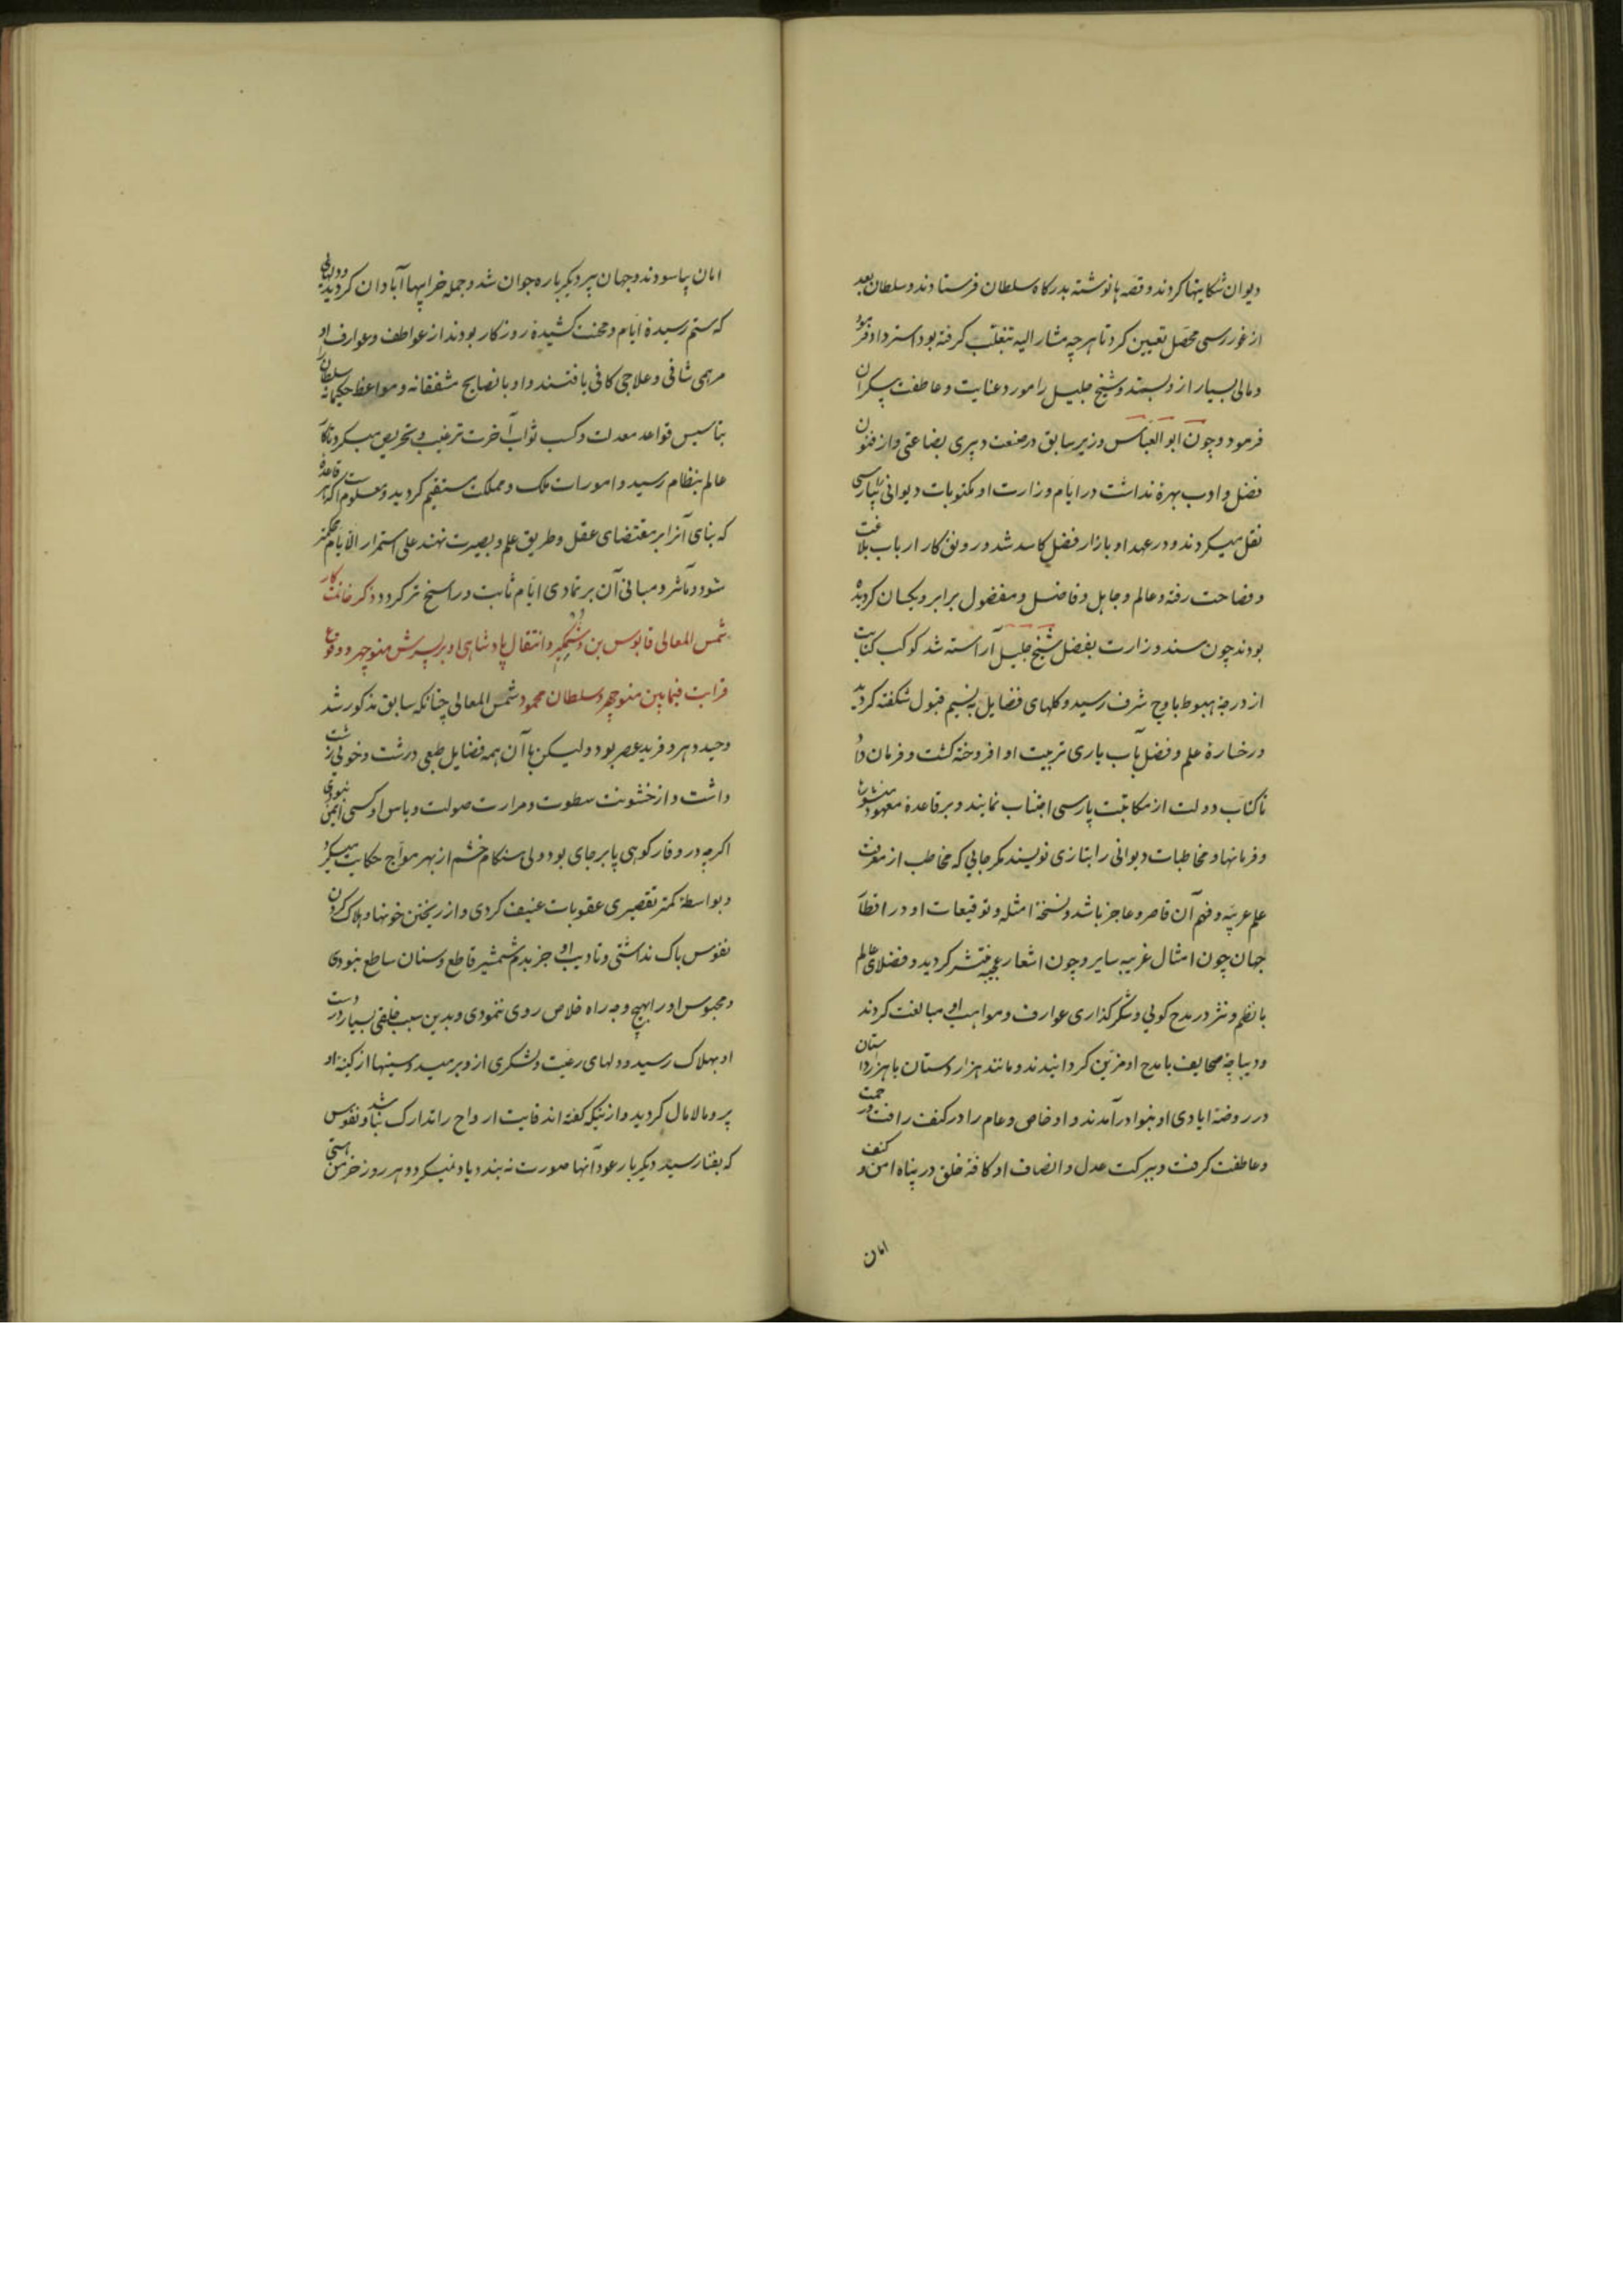 دیوان شکایتها کردند و قصه ها نوشته بدرکاه سلطان فرستادند و سلطان بعد
از غور رسی محصل تعیین کرد تا هر چه مشار الیه بتغلب کرفته بود استرداد فرمود
و مالی بسیار از و بستند و شیخ جلیل را مورد عنایت و عاطفت بیکران
فرمود و چون ابو العباس وزیر سابق در صنعت دبیری بضاعتی و از فنون
فضل و ادب بهرۀ نداشت در ایام وزارت او مکتوبات دیوانی را بپارسی
نقل میکردند و در عهد او بازار فضل کاسد شد و رونق کار ارباب بلاغت
و فصاحت رفته و عالم و جاهل و فاضل و مفضول برابر و یکسان کردیده
بودند چون مسند وزارت بفضل شیخ جلیل آراسته شد کوکب کتابت
از درجۀ هبوط باوج شرف رسید و کلهای فضایل به نسیم قبول شکفته کردید
و رخسارۀ علم و فضل بآب یاری تربیت او افروخته کشت و فرمان داد
تا کتاب دولت از مکاتبت پارسی اجتناب نمایند و بر قاعدۀ معهود منشورها
و فرمانها و مخاطبات دیوانی را بتازی نویسند مکر جایی که مخاطب از معرفت
علم عربیه و فهم آن قاصر و عاجز باشد و نسخۀ امثله و توقیعات او در اقطار
جهان چون امثال غریبه سایر و چون اشعار عجیبه منتشر کردید و فضلای عالم
با نظم و نثر در مدح کویی و شکر کذاری عوارف و مواهب او مبالغت کردند
و دیباچۀ صحایف بامدح او مزین کردانیدند و مانند هزار دستان با هزار داستان
در روضۀ ایادی او بنوا در آمدند و او خاص و عام را در کنف رافت و رحمت
و عاطفت کرفت و ببرکت عدل و انصاف او کافۀ خلق در پناه امن و کنف
امان
امان بیاسودند و جهان پیر دیکر باره جوان شد و جمله خرابیها آبادان کردید و دلهایی
که ستم رسیدۀ ایام و محنت کشیدۀ روزکار بودند از عواطف و عوارف او
مرهمی شافی و علاجی کافی یافتند و او با نصایح مشفقانه و مواعظ حکیمانه سلطان را
بتاسیس قواعد معدلت و کسب ثواب آخرت ترغیب و تحریص میکرد تا کار
عالم بنظام رسید و امورات ملک و مملکت مستقیم کردید و معلوم است که هر قاعدۀ
که بنای آنرا بر مقتضای عقل و طریق علم و بصیرت نهند علی استمرار الایام محکمتر
شود و مآثر و مبانی آن بر تمادی ایام ثابت و راسخ تر کردد و ذکر خاتمت کار
شمس المعالی قابوس بن وشمکیر و انتقال پادشاهی او بر پسرش منوچهر و وقوع
قرابت فیمابین منوچهر و سلطان محمود شمس المعالی چنانکه سابق مذکور شد
وحید دهر و فرید عصر بود ولیکن با آن همه فضایل طبعی درشت و خویی زشت
داشت و از خشونت سطوت و مرارت صولت و باس او کسی ایمن نبودی
اکرچه در وقار کوهی پا بر جای بود ولی هنکام خشم از بهر مواج حکایت میکرد
و بواسطۀ کمتر تقصیری عقوبات عنیف کردی و از ریختن خونها و هلاک کردن
نفوس باک نداشتی و تادیب او جز بدم شمشیر قاطع و سنان ساطع نبودی
و محبوس او را بهیچ وجه راه خلاص روی ننمودی و بدین سبب خلقی بسیار در دست
او بهلاک رسید و دلهای رعیت و لشکری از و برمید و سینها از کینۀ او
پر و مالامال کردید و از بنیکه کفته اند فایت ارواح را تدارک نباشد و نفوس
که بفنا رسید دیکر بار عود آنها صورت نه بندد یاد نمیکرد و هر روز خرمن هستی